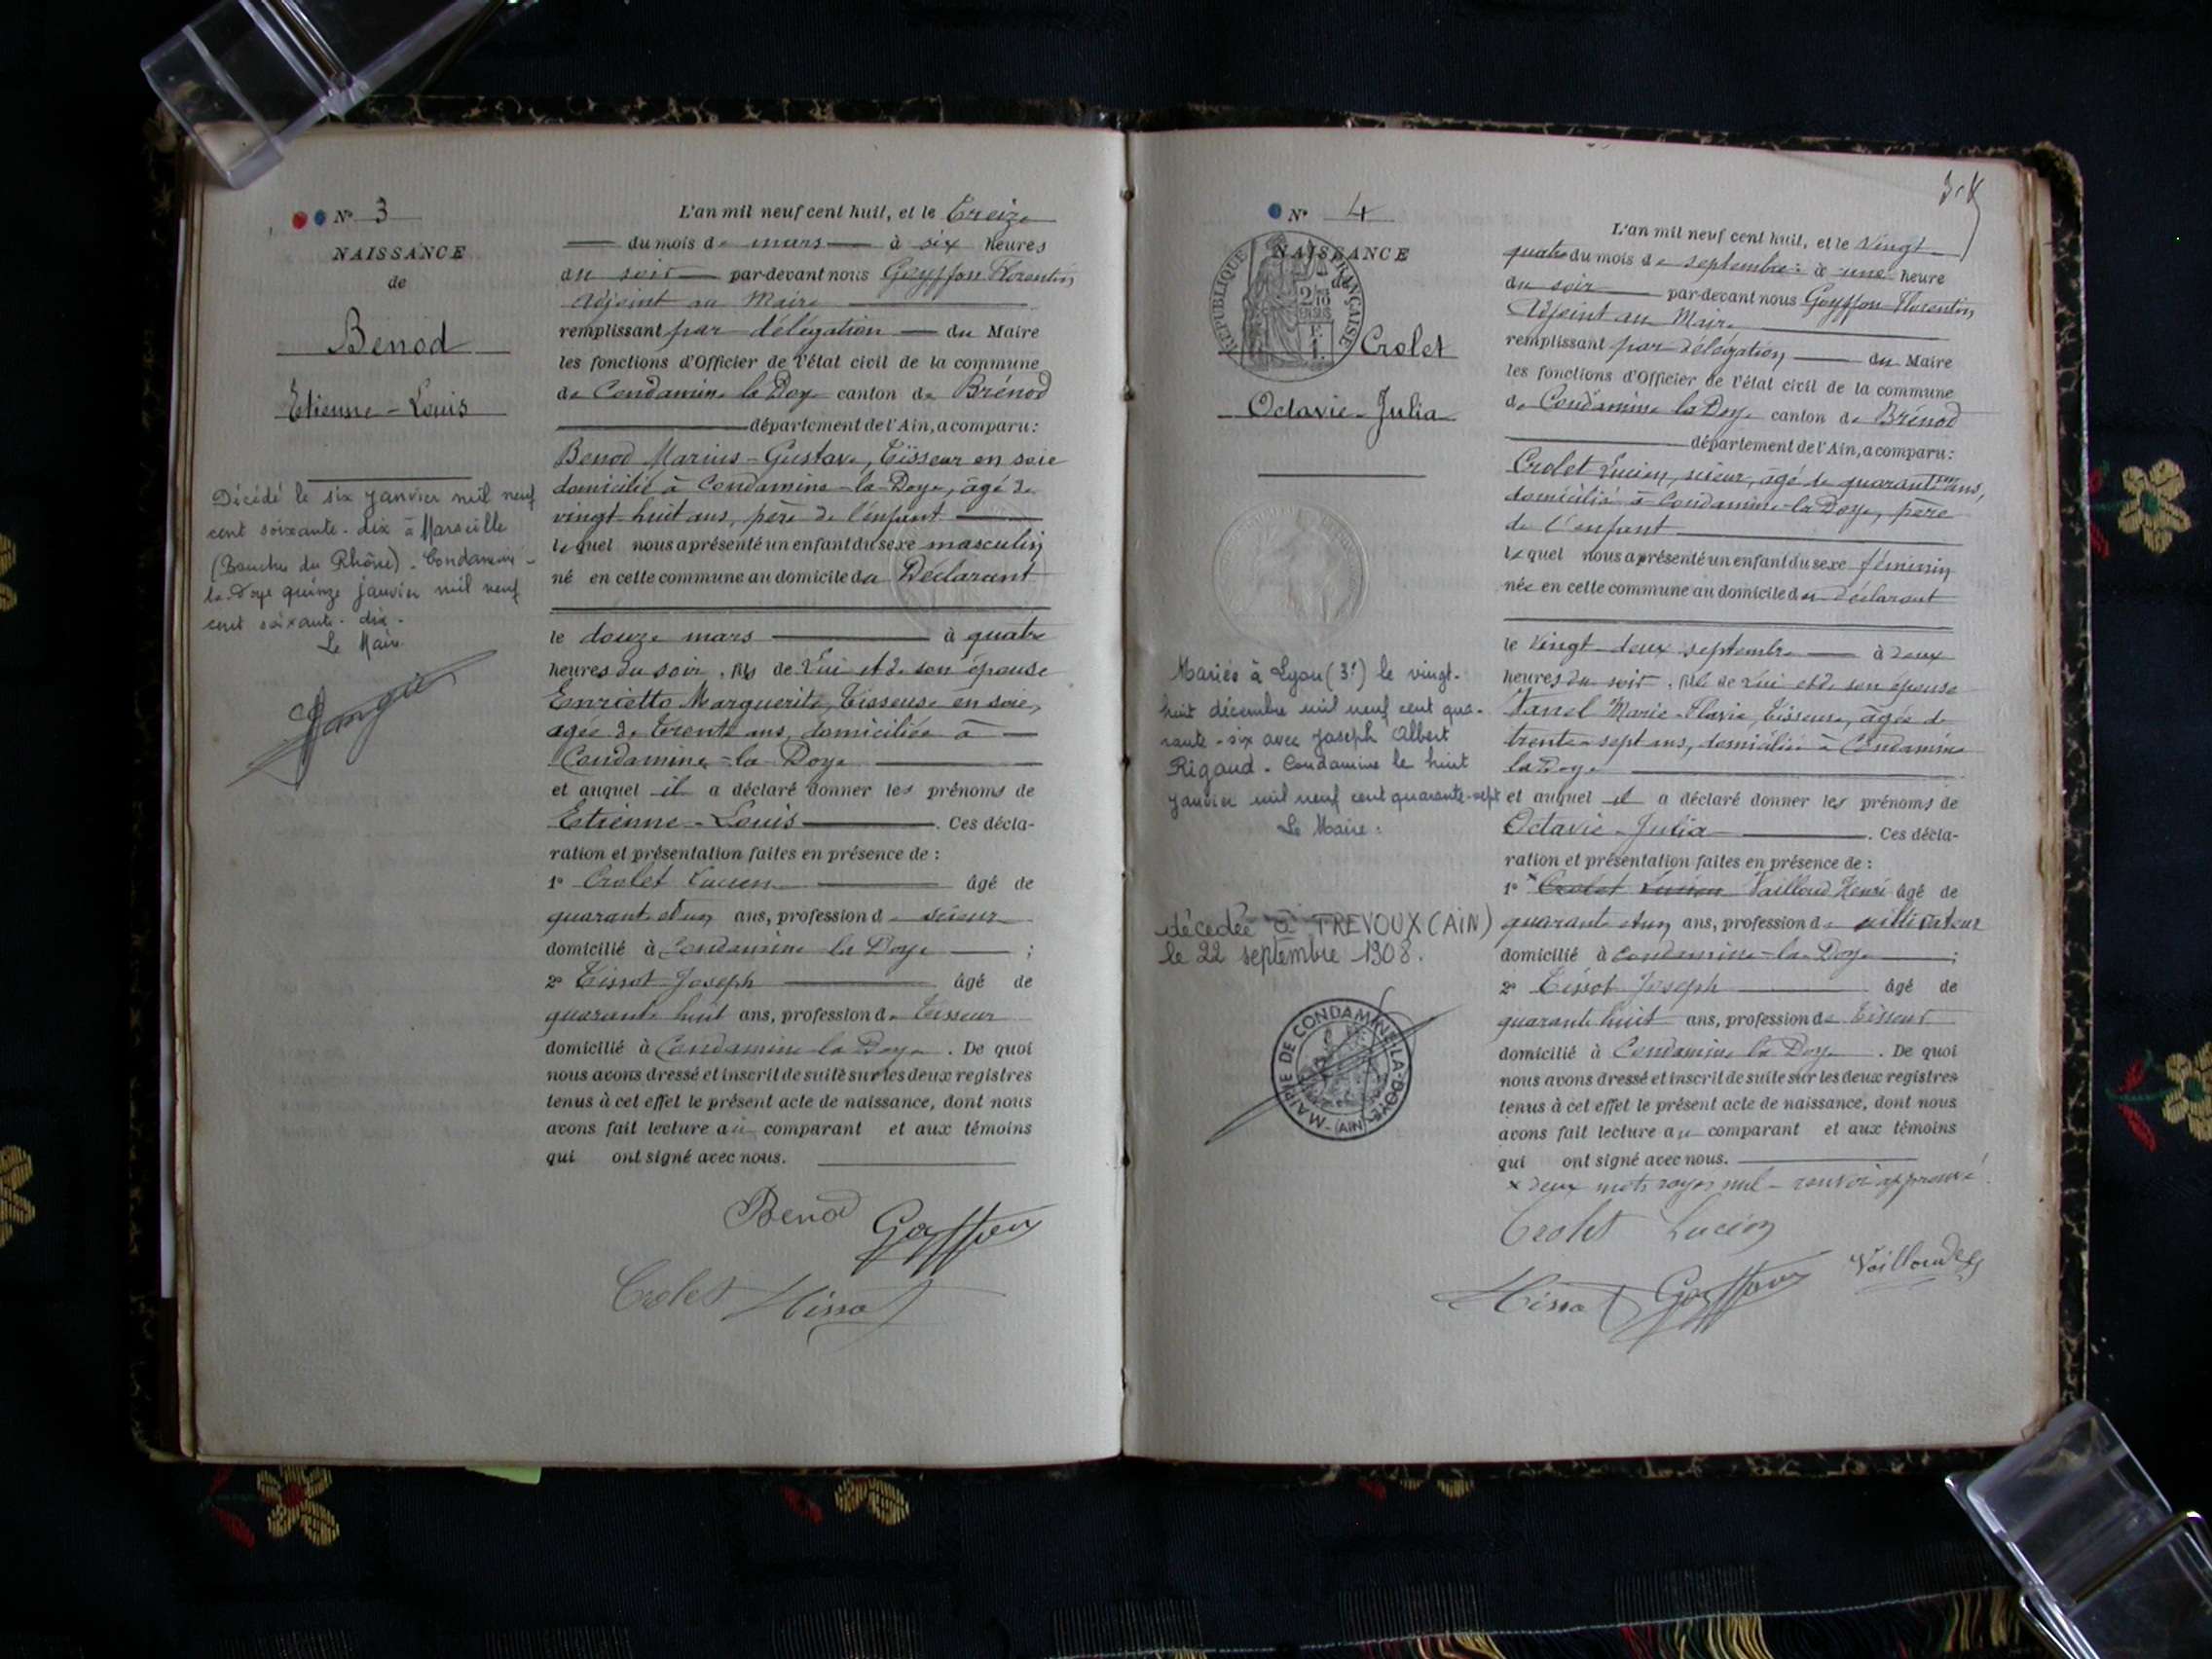 N° 3
NAISSANCE
de
Benod
Etienne-Louis
Décédé le six janvier mil neuf
cent soixante-dix à Marseille
(Bouches du Rhône). Condamine-
la-Doye quinze janvier mil neuf
cent soixante-dix.
Le Maire
L'an mil neuf cent huit, et le Treize
du mois de mars à six heures
du soir par-devant nous Goyffon Florentin
Adjoint au Maire
remplissant par délégation du Maire
les fonctions d'Officier de l'état civil de la commune
de Condamine la Doye canton de Brénod
département de l'Ain, a comparu:
Benod Marius-Gustave, Tisseur en soie
domicilié à Condamine-la-Doye, âgé de
vingt huit ans, père de l'enfant
lequel nous a présenté un enfant du sexe masculin
né en cette commune au domicile du Déclarant
le douze mars à quatre
heures du soir, fils de Lui et de son épouse
Enrietto Marguerite, Tisseuse en soie,
agée de trente ans, domiciliée à
Condamine-la-Doye
et auquel il a déclaré donner les prénoms de
Etienne-Louis. Ces décla-
ration et présentation faites en présence de :
1° Crolet Lucien âgé de
quarante et un ans, profession de scieur
domicilié à Condamine la Doye ;
2° Tissot Joseph âgé de
quarante huit ans, profession de Tisseur
domicilié à Condamine-la-Doye. De quoi
nous avons dressé et inscrit de suite sur les deux registres
tenus à cet effet le présent acte de naissance, dont nous
avons fait lecture au comparant et aux témoins
qui ont signé avec nous.
Benod Goyffon
Crolet Tissot
N° 4
NAISSANCE
de
RÉPUBLIQUE FRANÇAISE
2/10
EN SUS
F.
1.
Crolet
Octavie-Julia
Mariée à Lyon (3e) le vingt-
huit décembre mil neuf cent qua-
rante-six avec Joseph Albert
Rigaud. Condamine le huit
janvier mil neuf cent quarante-sept
Le Maire:
décédée à TREVOUX (AIN)
le 22 septembre 1908.
MAIRIE DE CONDAMINE-LA-DOYE (AIN)
L'an mil neuf cent huit, et le Vingt
quatre du mois de septembre à une heure
du soir par-devant nous Goyffon Florentin
Adjoint au Maire
remplissant par délégation du Maire
les fonctions d'Officier de l'état civil de la commune
de Condamine la Doye canton de Brénod
département de l'Ain, a comparu:
Crolet Lucien, scieur, âgé de quarante un ans,
domicilié à Condamine-la-Doye, père
de l'enfant
lequel nous a présenté un enfant du sexe féminin
née en cette commune au domicile du déclarant
le Vingt deux septembre à deux
heures du soir, fille de Lui et de son épouse
Marie-Flavie, Tisseuse, âgée de
trente-sept ans, domiciliée à Condamine
la Doye
et auquel il a déclaré donner les prénoms de
Octavie-Julia. Ces décla-
ration et présentation faites en présence de :
1° x Crolet Lucien Vailloud Henri âgé de
quarante et un ans, profession de cultivateur
domicilié à Condamine-la-Doye ;
2° Tissot Joseph âgé de
quarante huit ans, profession de Tisseur
domicilié à Condamine la Doye. De quoi
nous avons dressé et inscrit de suite sur les deux registres
tenus à cet effet le présent acte de naissance, dont nous
avons fait lecture au comparant et aux témoins
qui ont signé avec nous.
x deux mots rayés nul - renvoi approuvé
Crolet Lucien
Tissot Goyffon Vailloud